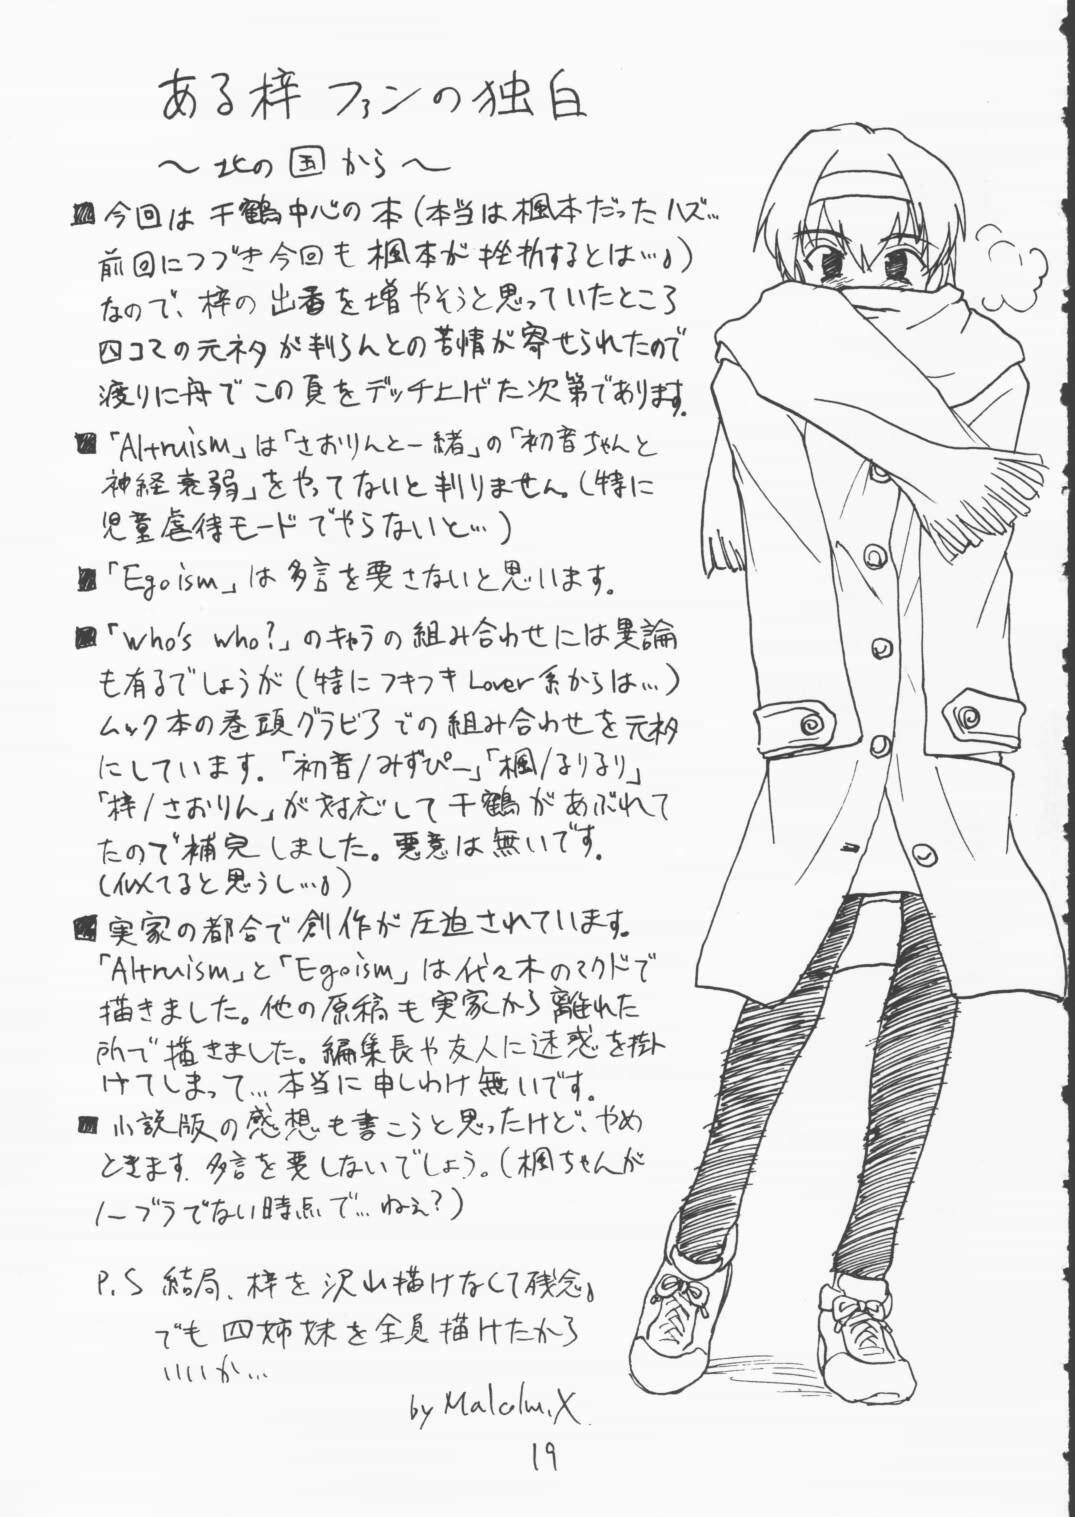 ある梓ファンの独白
～北の国から～
■今回は千鶴中心の本(本当は楓本だったハズ…
前回につづき今回も楓本が挫折するとは…。)
なので、梓の出番を増やそうと思っていたところ
四コマの元ネタが判らんとの苦情が寄せられたので
渡りに舟でこの頁をデッチ上げた次第であります。
■「Altruism」は「さおりんと一緒」の「初音ちゃんと
神経衰弱」をやってないと判りません。(特に
児童虐待モードでやらないと…)
■「Egoism」は多言を要さないと思います。
■「who's who?」のキャラの組み合わせには異論
も有るでしょうが(特にフキつきLover系からは…)
ムック本の巻頭グラビアでの組み合わせを元ネタ
にしています。「初音/みずぴー」「楓/るりるり」
「梓/さおりん」が対応して千鶴があぶれて
たので補完しました。悪意は無いです。
(似てると思うし…。)
■実家の都合で創作が圧迫されています。
「Altruism」と「Egoism」は代々木のマクドで
描きました。他の原稿も実家から離れた
所で描きました。編集長や友人に迷惑を掛
けてしまって…本当に申しわけ無いです。
■小説版の感想も書こうと思ったけど、やめ
ときます。多言を要しないでしょう。(楓ちゃんが
ノーブラでない時点で…ねぇ?)
P.S 結局、梓を沢山描けなくて残念。
でも四姉妹を全員描けたから
いいか…
by Malcolm.X
19